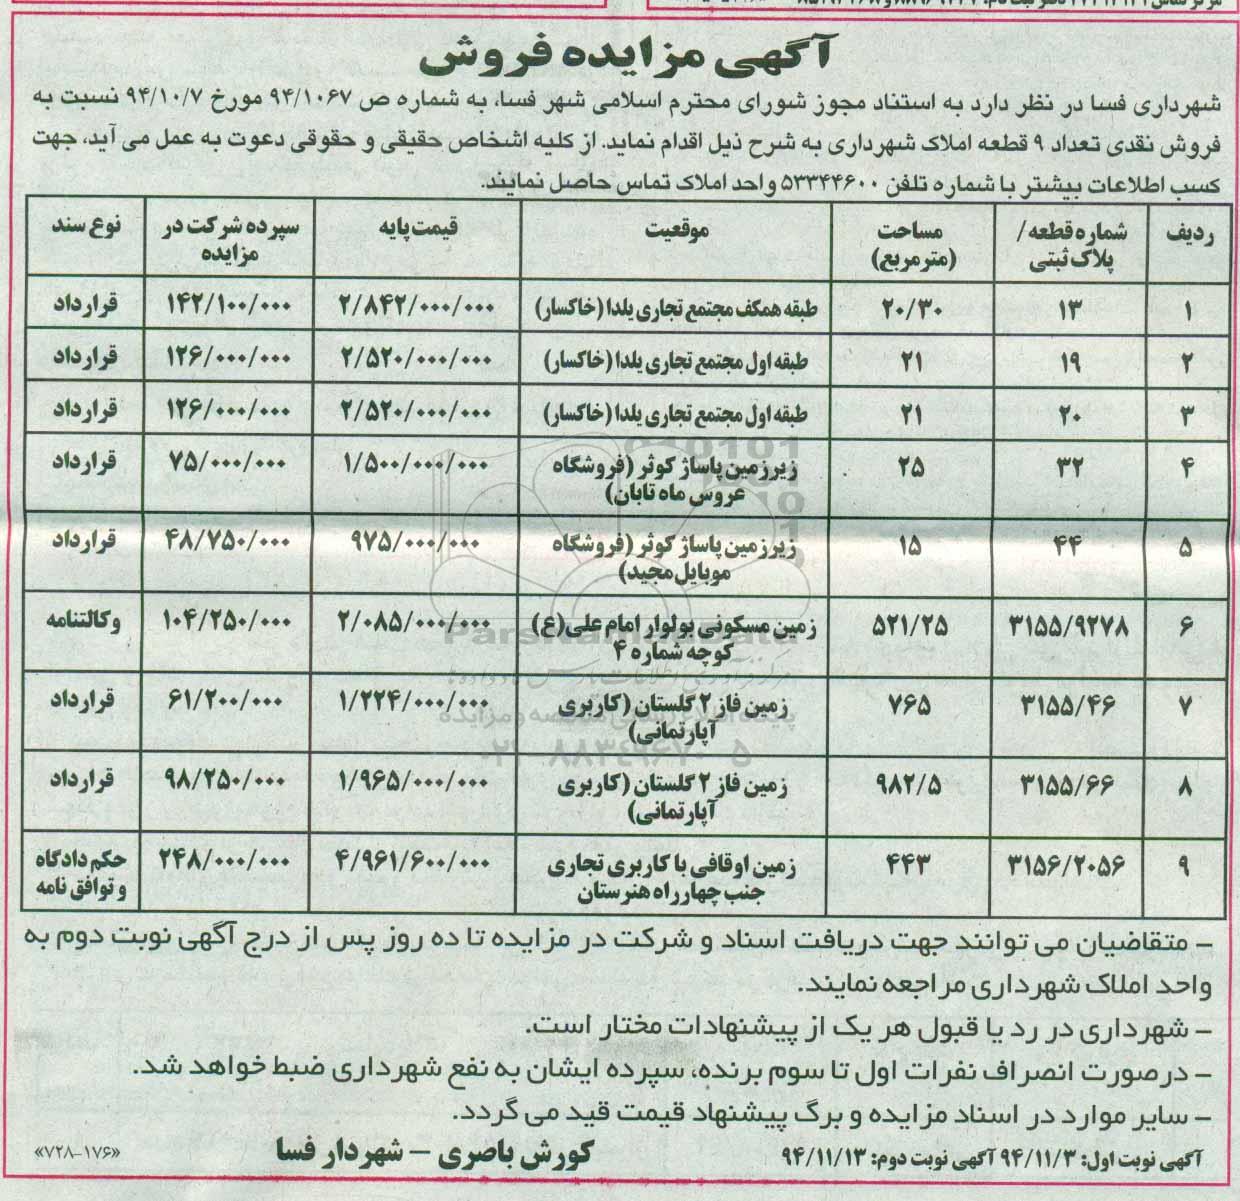 آگهی مزایده فروش
شهرداری فسا در نظر دارد به استناد مجوز شورای محترم اسلامی شهر فسا، به شماره ص ۹۴/۱۰۶۷ مورخ ۹۴/۱۰/۷ نسبت به
فروش نقدی تعداد ۹ قطعه املاک شهرداری به شرح ذیل اقدام نماید. از کلیه اشخاص حقیقی و حقوقی دعوت به عمل می آید، جهت
کسب اطلاعات بیشتر با شماره تلفن ۵۳۳۴۴۶۰۰ واحد املاک تماس حاصل نمایند.
ردیف شماره قطعه/ پلاک ثبتی مساحت (مترمربع) موقعیت قیمت پایه سپرده شرکت در مزایده نوع سند
۱ ۱۳ ۲۰/۳۰ طبقه همکف مجتمع تجاری یلدا (خاکسار) ۲/۸۴۲/۰۰۰/۰۰۰ ۱۴۲/۱۰۰/۰۰۰ قرارداد
۲ ۱۹ ۲۱ طبقه اول مجتمع تجاری یلدا (خاکسار) ۲/۵۲۰/۰۰۰/۰۰۰ ۱۲۶/۰۰۰/۰۰۰ قرارداد
۳ ۲۰ ۲۱ طبقه اول مجتمع تجاری یلدا (خاکسار) ۲/۵۲۰/۰۰۰/۰۰۰ ۱۲۶/۰۰۰/۰۰۰ قرارداد
۴ ۳۲ ۲۵ زیرزمین پاساژ کوثر (فروشگاه عروس ماه تابان) ۱/۵۰۰/۰۰۰/۰۰۰ ۷۵/۰۰۰/۰۰۰ قرارداد
۵ ۴۴ ۱۵ زیرزمین پاساژ کوثر (فروشگاه موبایل مجید) ۹۷۵/۰۰۰/۰۰۰ ۴۸/۷۵۰/۰۰۰ قرارداد
۶ ۳۱۵۵/۹۲۷۸ ۵۲۱/۲۵ زمین مسکونی بولوار امام علی (ع) کوچه شماره ۴ ۲/۰۸۵/۰۰۰/۰۰۰ ۱۰۴/۲۵۰/۰۰۰ وکالتنامه
۷ ۳۱۵۵/۴۶ ۷۶۵ زمین فاز ۲ گلستان (کاربری آپارتمانی) ۱/۲۲۴/۰۰۰/۰۰۰ ۶۱/۲۰۰/۰۰۰ قرارداد
۸ ۳۱۵۵/۶۶ ۹۸۲/۵ زمین فاز ۲ گلستان (کاربری آپارتمانی) ۱/۹۶۵/۰۰۰/۰۰۰ ۹۸/۲۵۰/۰۰۰ قرارداد
۹ ۳۱۵۶/۲۰۵۶ ۴۴۳ زمین اوقافی با کاربری تجاری جنب چهارراه هنرستان ۴/۹۶۱/۶۰۰/۰۰۰ ۲۴۸/۰۰۰/۰۰۰ حکم دادگاه و توافق نامه
– متقاضیان می توانند جهت دریافت اسناد و شرکت در مزایده تا ده روز پس از درج آگهی نوبت دوم به
واحد املاک شهرداری مراجعه نمایند.
– شهرداری در رد یا قبول هر یک از پیشنهادات مختار است.
– درصورت انصراف نفرات اول تا سوم برنده، سپرده ایشان به نفع شهرداری ضبط خواهد شد.
– سایر موارد در اسناد مزایده و برگ پیشنهاد قیمت قید می گردد.
آگهی نوبت اول: ۹۴/۱۱/۳ آگهی نوبت دوم: ۹۴/۱۱/۱۳ کورش باصری – شهردار فسا «۷۲۸-۱۷۶»